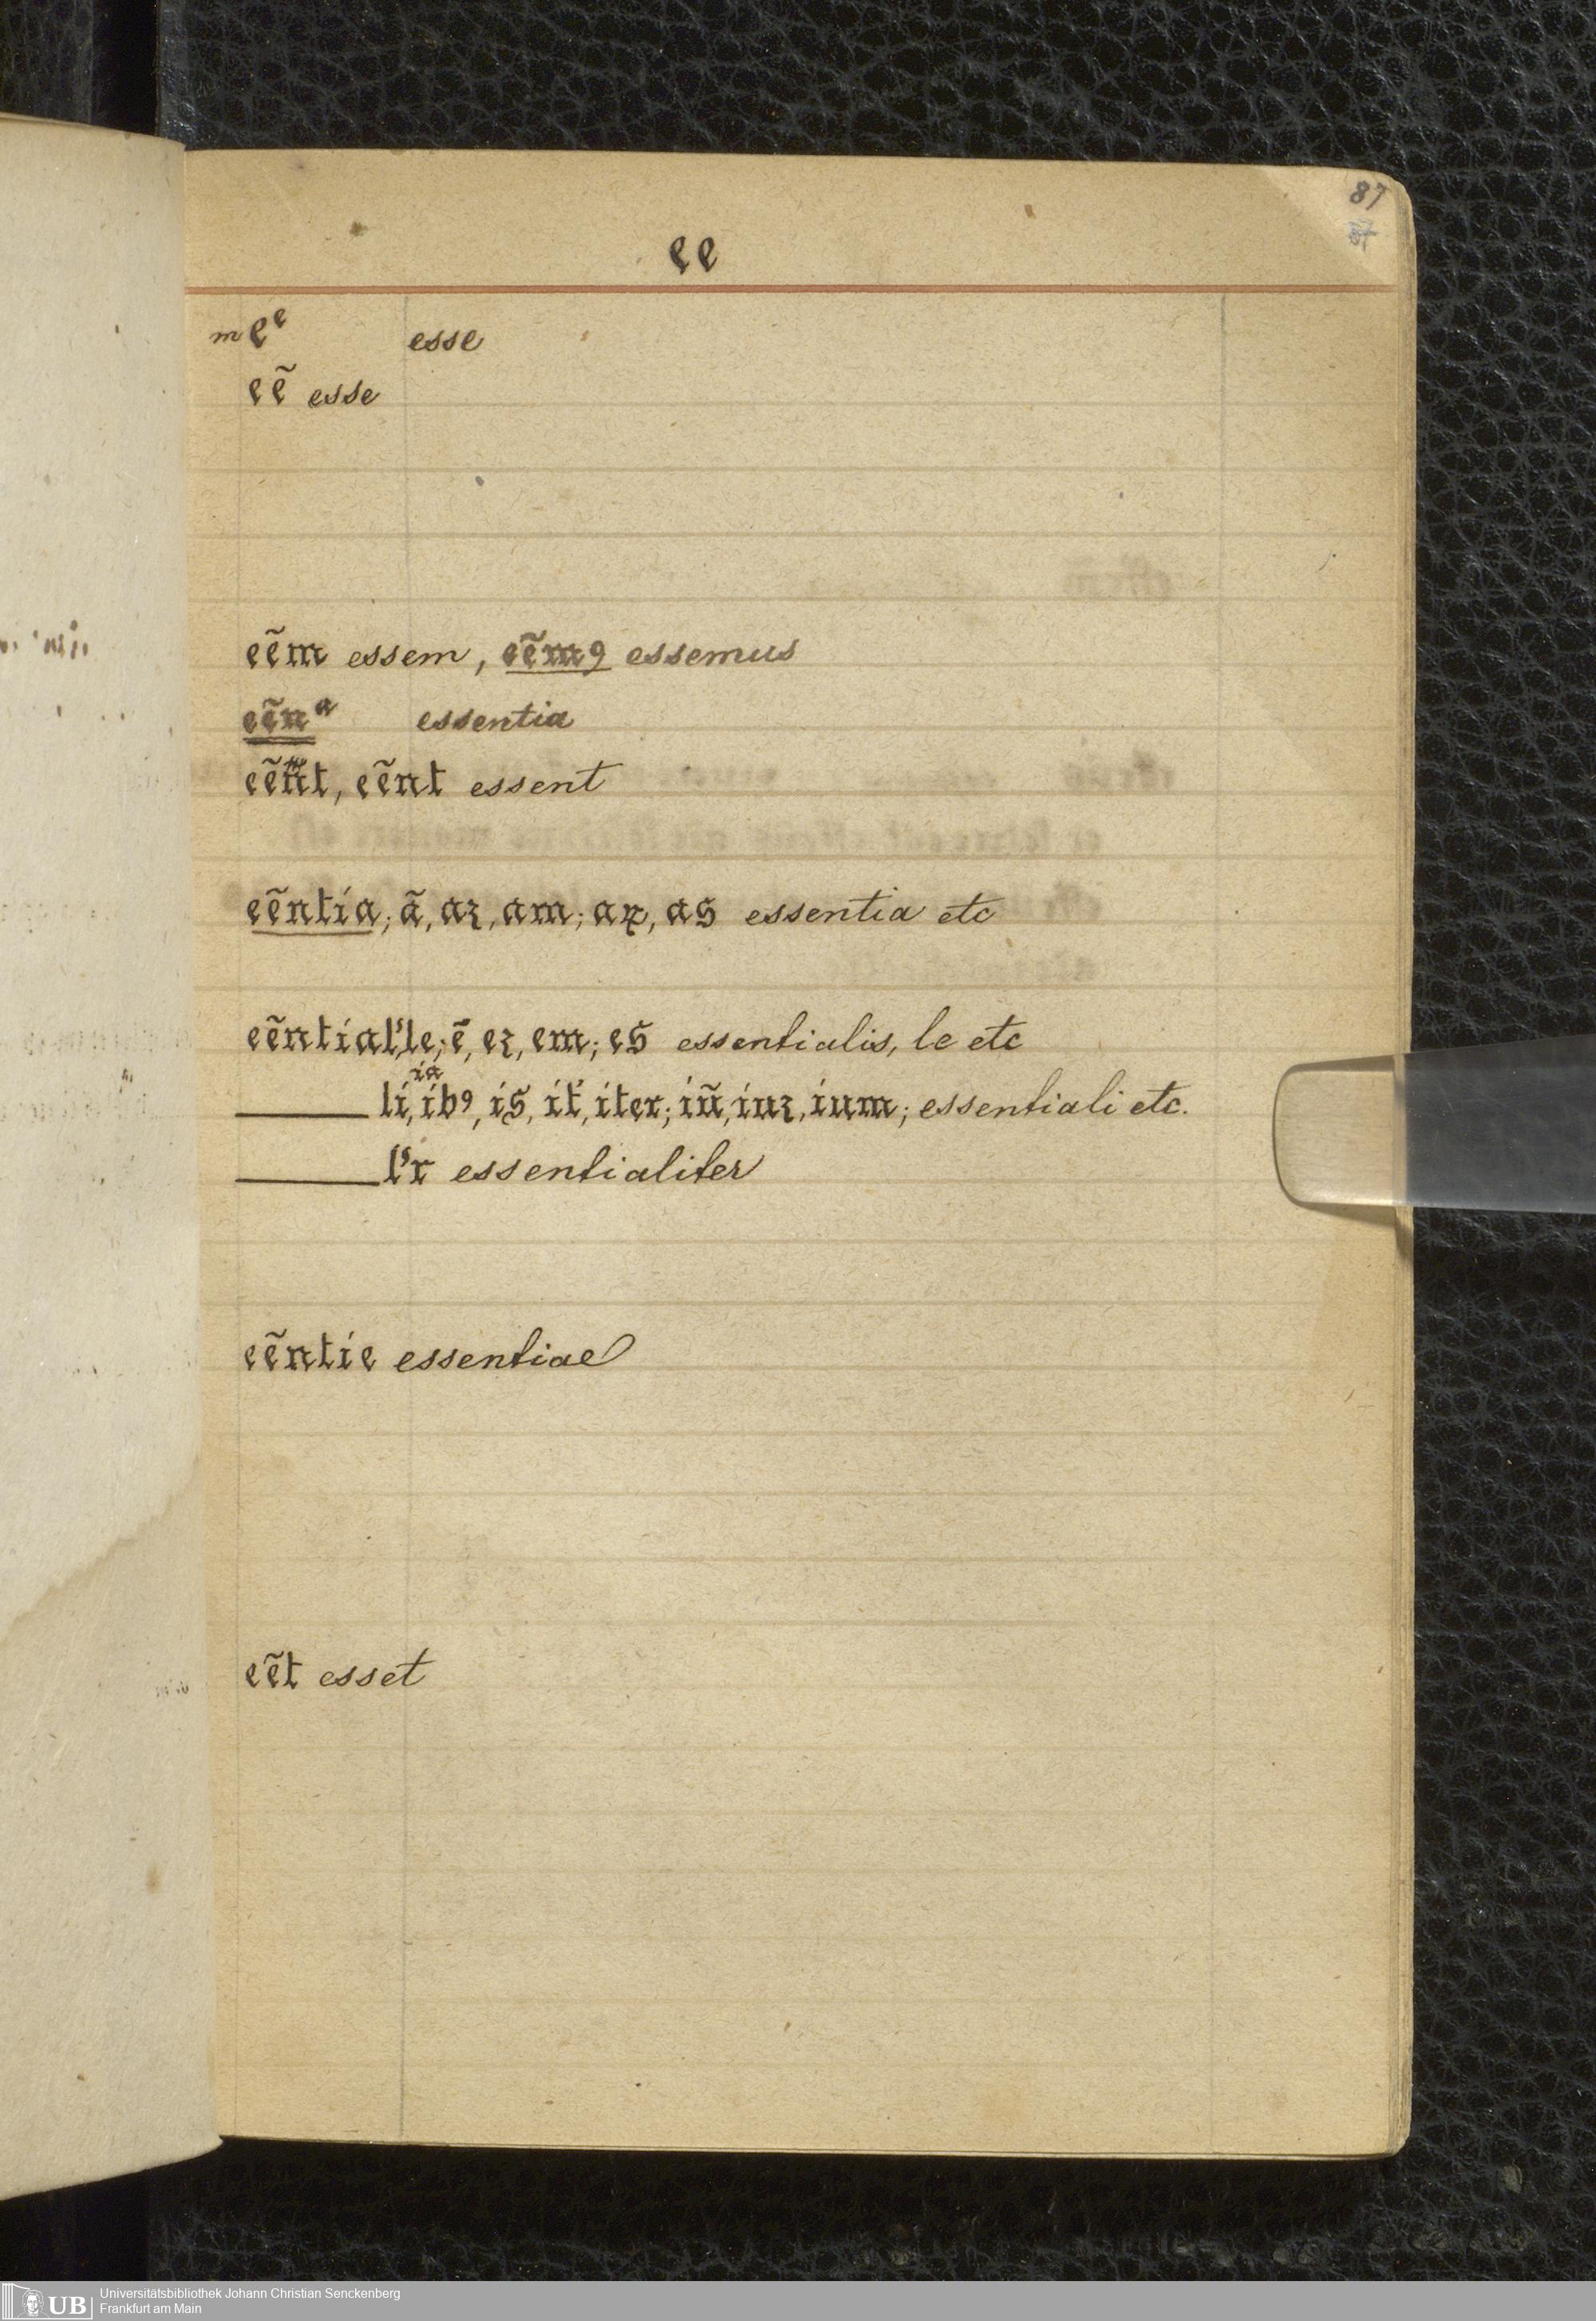 87
87
ee
m eᵉ esse
eẽ esse
eẽm essem, eẽmꝯ essemus
eẽnᵃ essentia
eẽnt, eẽnt essent
eẽntia; ã, aꝫ, am; aꝝ, as essentia etc
eẽntial's, le; ẽ, eꝫ, em; es essentialis, le etc
ia
li, ibꝰ, is, it', iter; iũ, iuꝫ, ium; essentiali etc.
l'r essentialiter
eẽntie essentiae
eẽt esset
UB Universitätsbibliothek Johann Christian Senckenberg
Frankfurt am Main